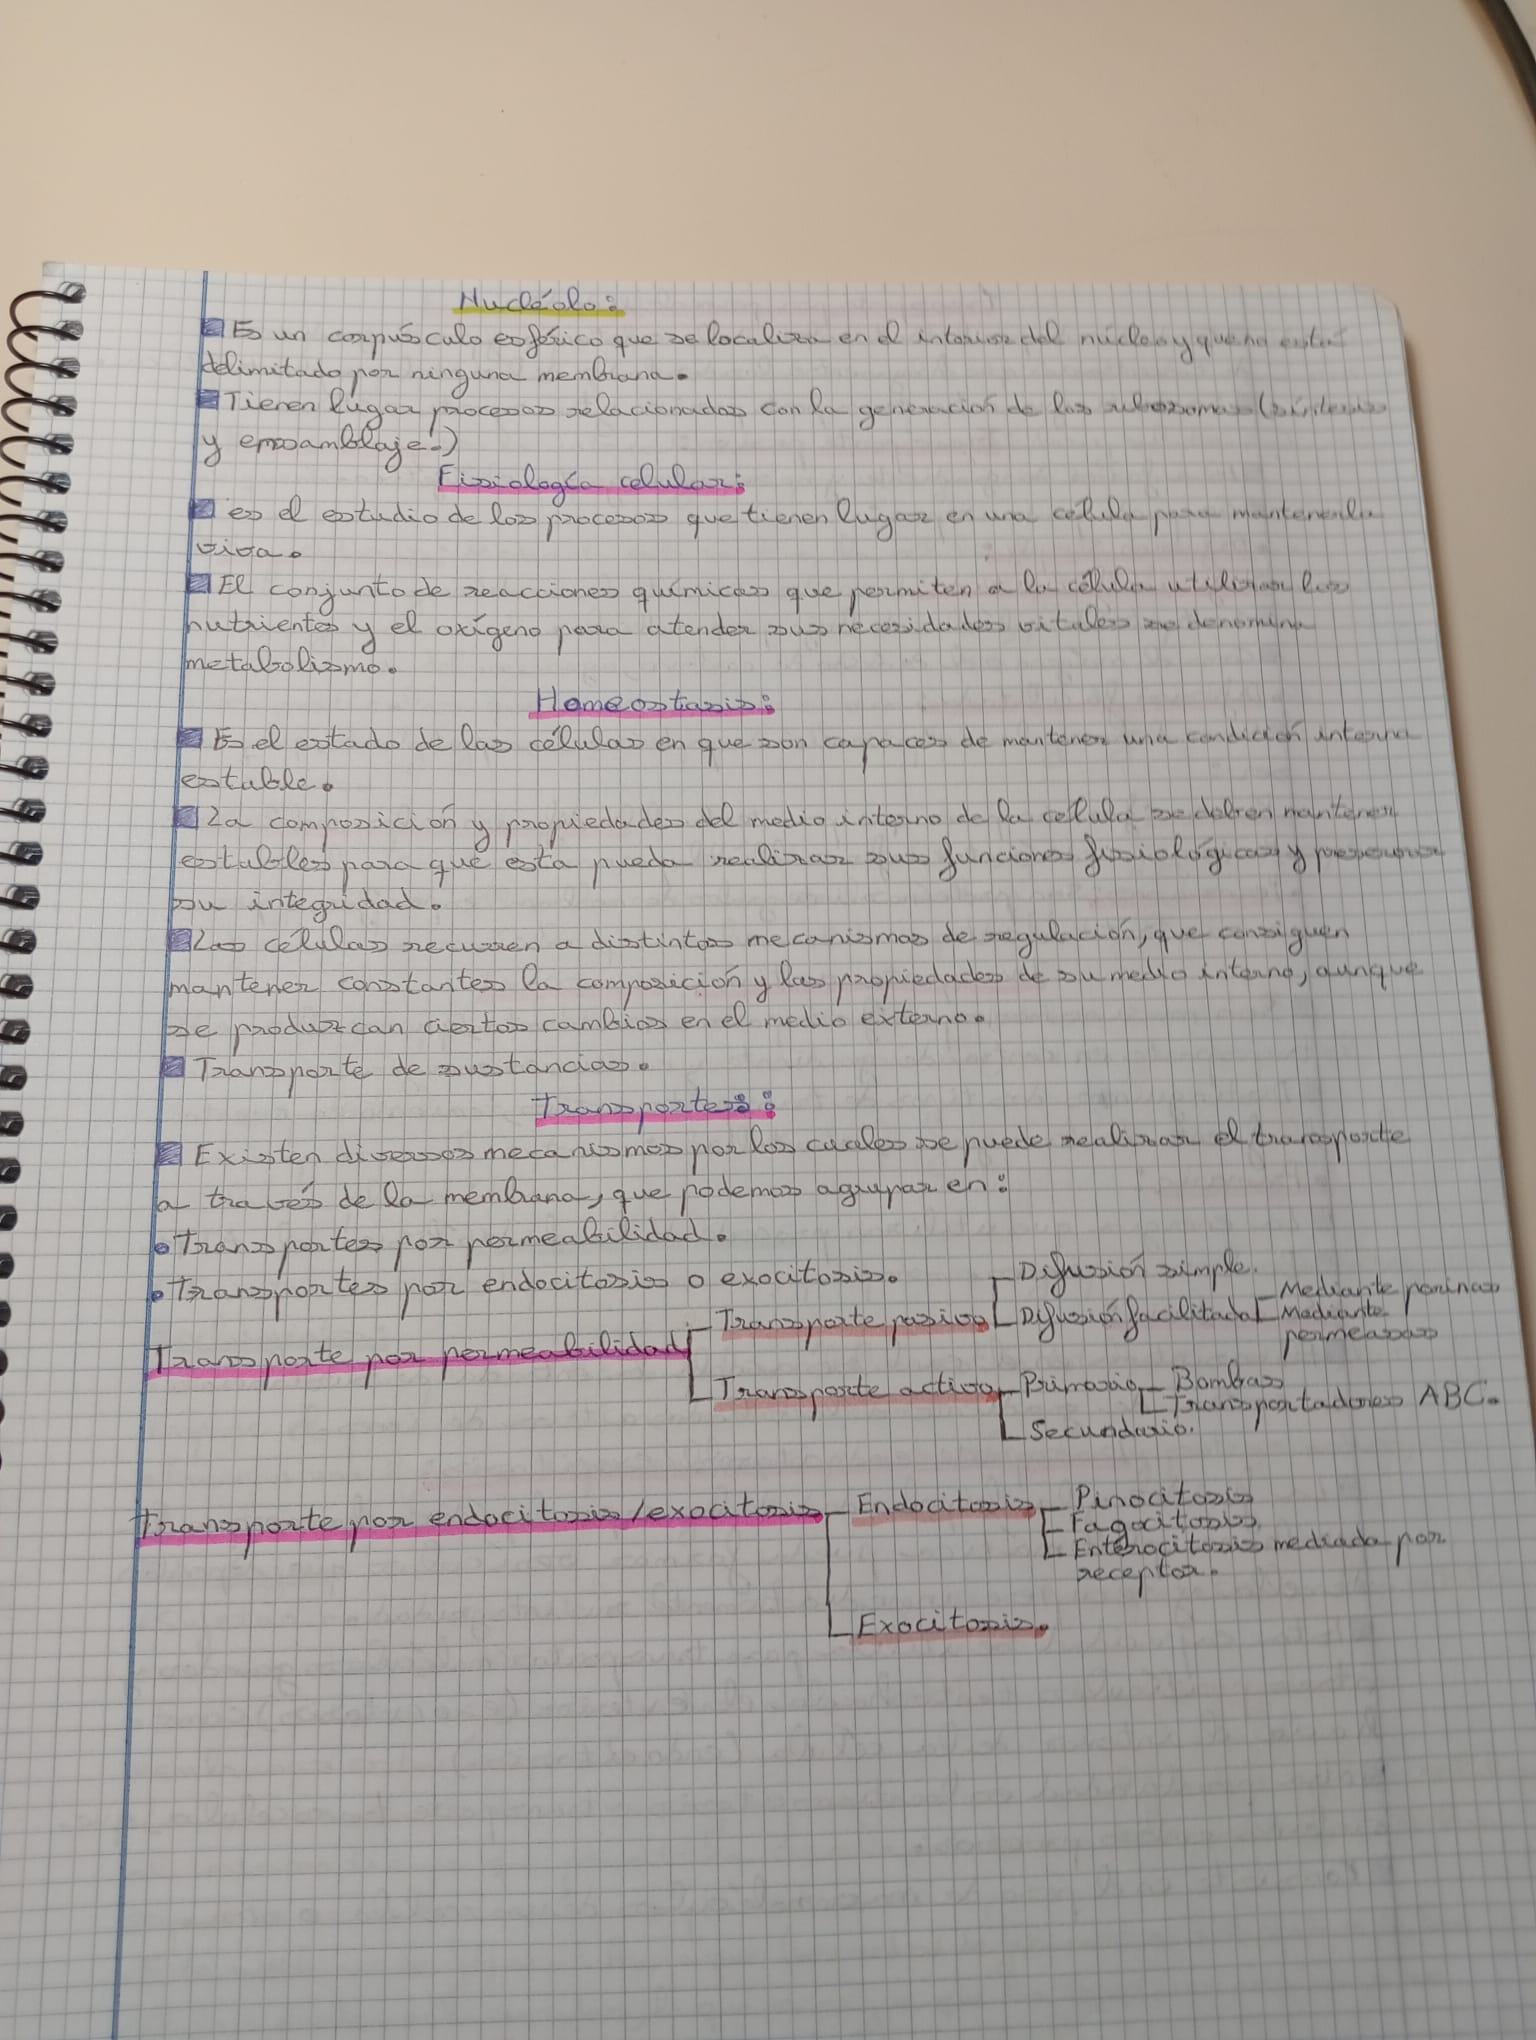 Nucléolo:
Es un corpúsculo esférico que se localiza en el interior del núcleo y que no está
delimitado por ninguna membrana.
Tienen lugar procesos relacionados con la generación de los ribosomas (síntesis
y ensamblaje.)
Fisiología celular:
es el estudio de los procesos que tienen lugar en una célula para mantenerla
viva.
El conjunto de reacciones químicas que permiten a la célula utilizar los
nutrientes y el oxígeno para atender sus necesidades vitales se denomina
metabolismo.
Homeostasis:
Es el estado de las células en que son capaces de mantener una condición interna
estable.
La composición y propiedades del medio interno de la celula se deben mantener
estables para que esta pueda realizar sus funciones fisiológicas y preservar
su integridad.
Las células recurren a distintos mecanismos de regulación, que consiguen
mantener constantes la composición y las propiedades de su medio interno, aunque
se produzcan ciertos cambios en el medio externo.
Transporte de sustancias.
Transportes:
Existen diversos mecanismos por los cuales se puede realizar el transporte
a través de la membrana, que podemos agrupar en:
• Transportes por permeabilidad.
• Transportes por endocitosis o exocitosis.
Difusión simple.
Transporte pasivo Difusión facilitada Mediante porinas
Mediante
permeasas
Transporte por permeabilidad
Transporte activo Primario Bombas
Transportadores ABC.
Secundario.
Transporte por endocitosis/exocitosis Endocitosis Pinocitosis
Fagocitosis
Enterocitosis mediada por
receptor.
Exocitosis.